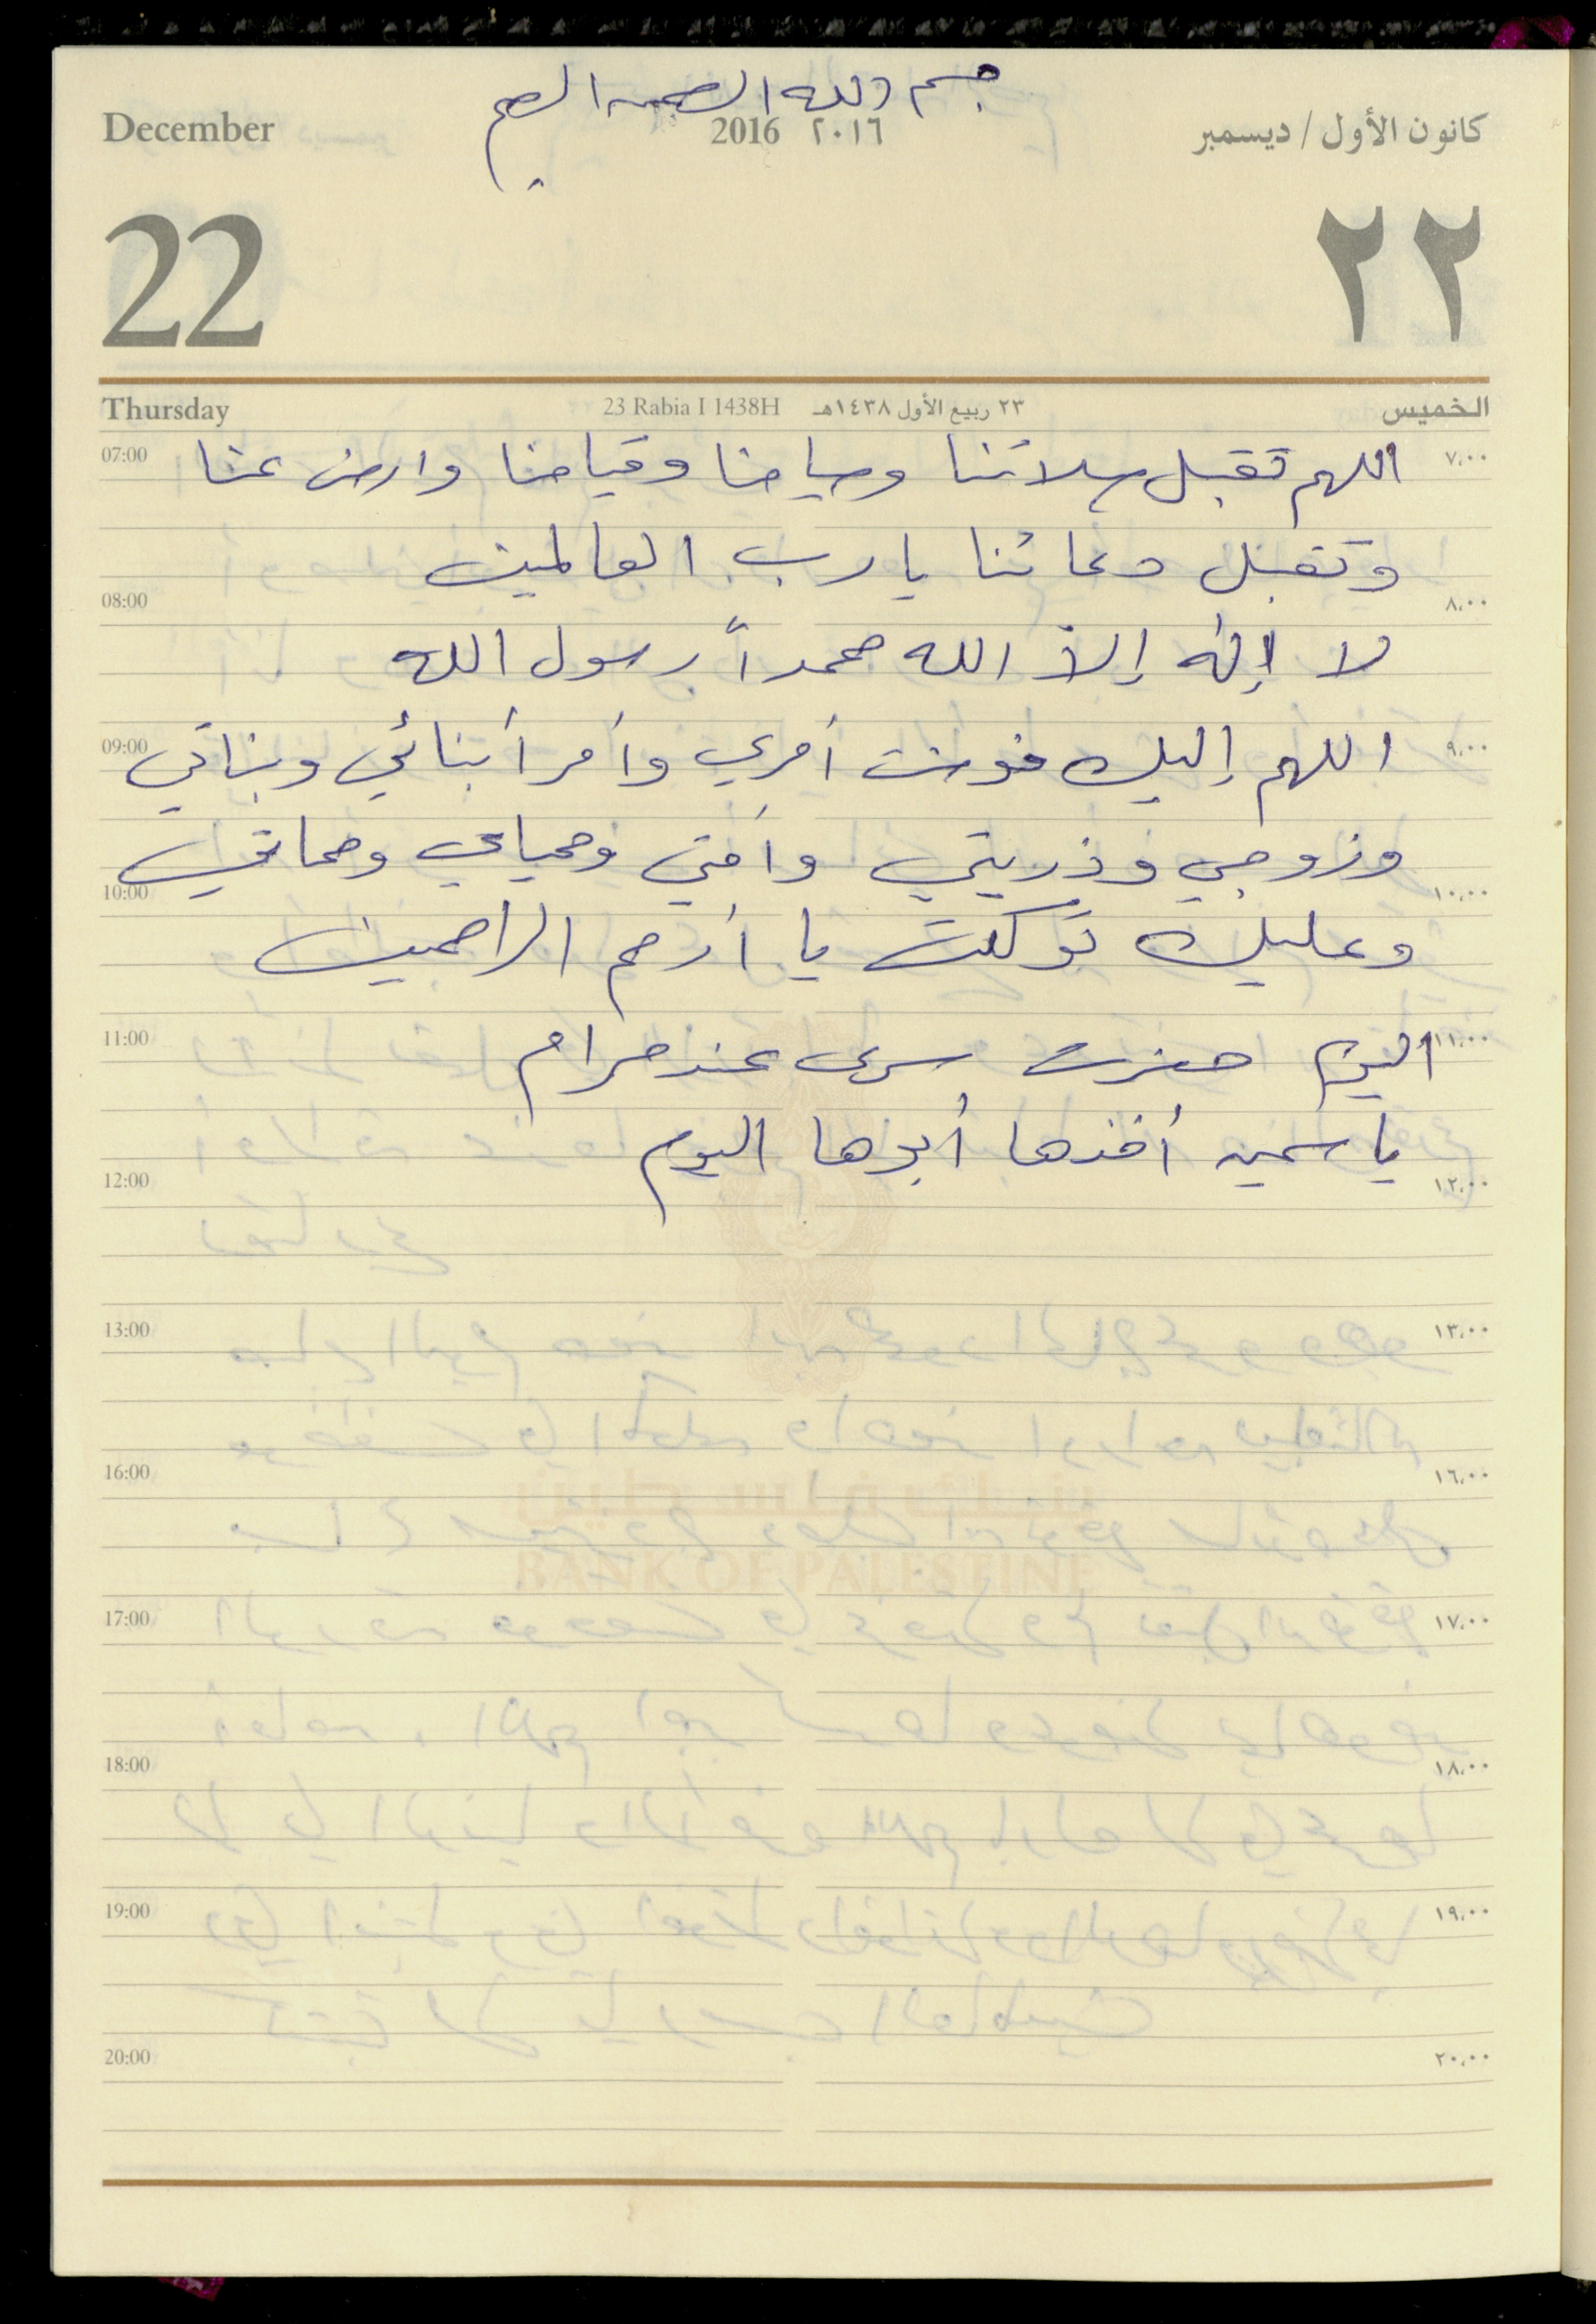 بسم الله الرحمن الرحيم
December 2016 ٢٠١٦ كانون الأول / ديسمبر
22 ٢٢
Thursday 23 Rabia I 1438H ٢٣ ربيع الأول ١٤٣٨هـ الخميس
07:00 اللهم تقبل صلاتنا وصيامنا وقيامنا وارض عنا ٧،٠٠
وتقبل دعائنا يا رب العالمين
08:00 ٨،٠٠
لا إله إلا الله محمداً رسول الله
09:00 اللهم إليك فوضت أمري وأمر أبنائي وبناتي ٩،٠٠
وزوجي وذريتي وأمتي ومحياي ومماتي
10:00 ١٠،٠٠
وعليك توكلت يا أرحم الراحمين
11:00 اليوم حضرت سرى عند مرام ١١،٠٠
ياسمين أخذها أبوها اليوم
12:00 ١٢،٠٠
13:00 ١٣،٠٠
16:00 ١٦،٠٠
بنك فلسطين
BANK OF PALESTINE
17:00 ١٧،٠٠
18:00 ١٨،٠٠
19:00 ١٩،٠٠
20:00 ٢٠،٠٠